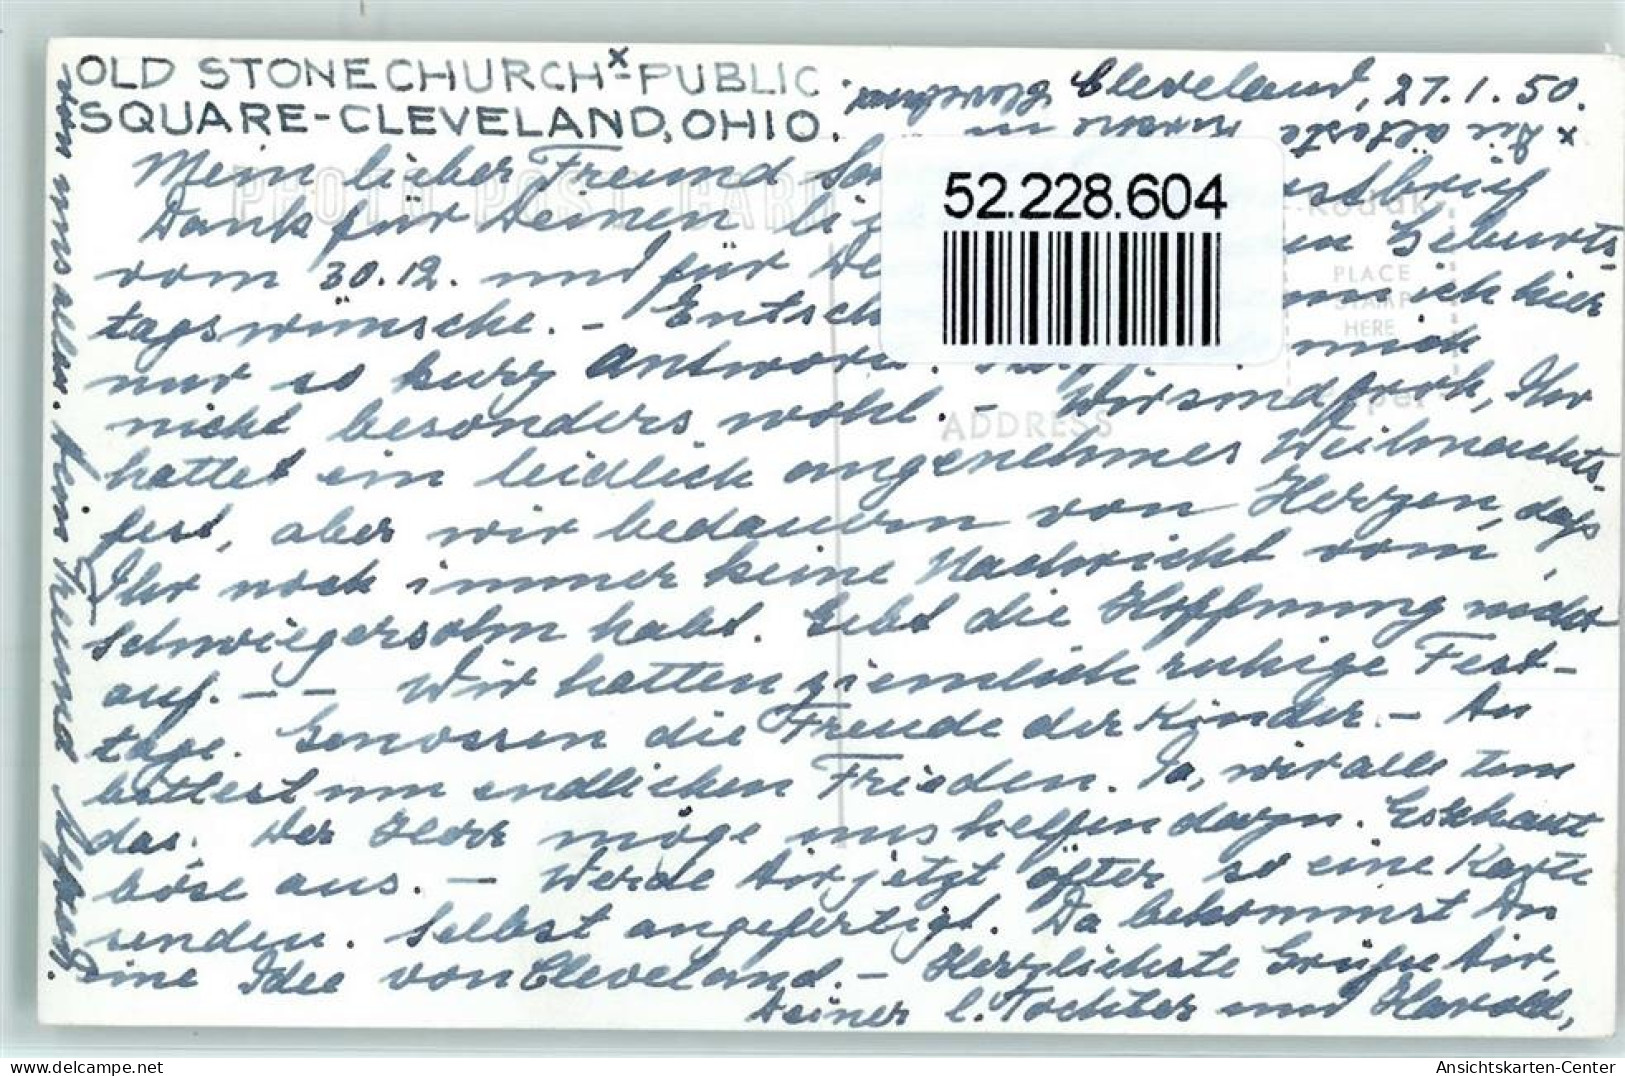 OLD STONE CHURCH x - PUBLIC
SQUARE - CLEVELAND, OHIO.
Cleveland, 27.1.50.
x Die älteste in
PHOTO POST CARD
Mein lieber Freund
Dank für Deinen
vom 30.12. und für Geburts-
tagswünsche. - ich hier
nur so kurz mich
nicht besonders wohl. - Wir sind froh, Ihr
hattet ein leidlich angenehmes Weihnachts-
fest, aber wir bedauern von Herzen, daß
Ihr noch immer keine Nachricht vom
Schwiegersohn habt. Gebt die Hoffnung nicht
auf. - - Wir hatten ziemlich ruhige Fest-
tage. Genossen die Freude der Kinder. - Du
bittest um endlichen Frieden. Ja, wir alle tun
das. Der Herr möge uns helfen dazu. Es schaut
böse aus. - Werde Dir jetzt öfter so eine Karte
senden. Selbst angefertigt. Da bekommst Du
eine Idee von Cleveland. - Herzlichste Grüße Dir,
Deiner l. Tochter und Harold,
von uns allen. Dein Freund
52.228.604
Kodak
PLACE
STAMP
HERE
ADDRESS
Ansichtskarten-Center